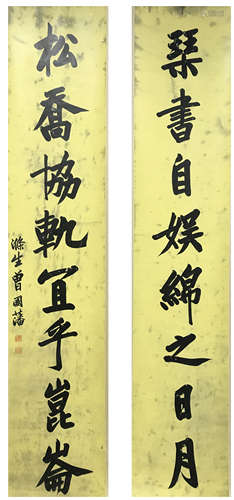 琹書自娱綿之日月
松喬協軌宜乎崑崙
滌生曾國藩